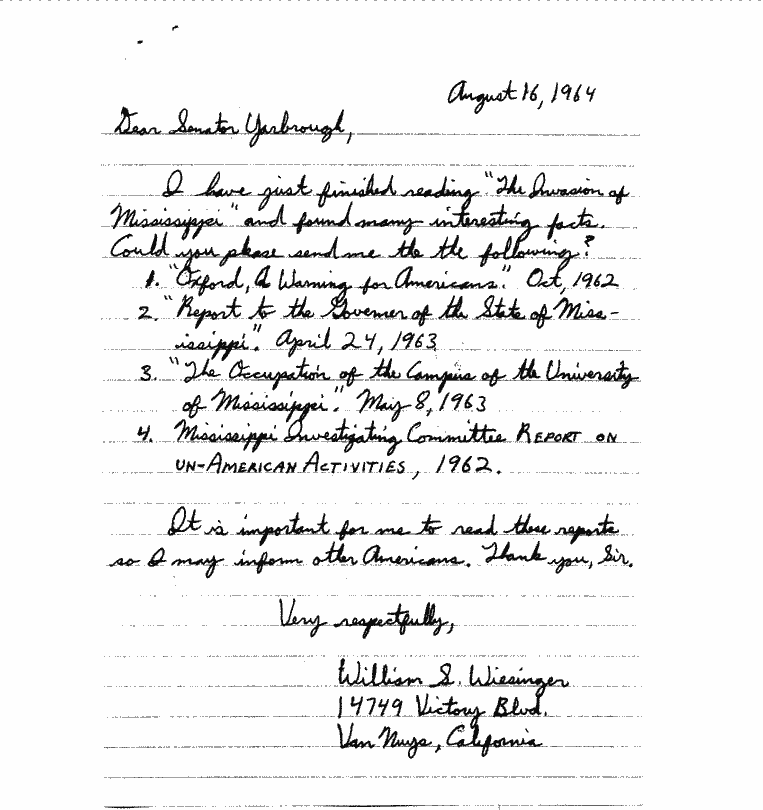 August 16, 1964
Dear Senator Yarbrough,
I have just finished reading "The Invasion of
Mississippi" and found many interesting facts.
Could you please send me the the following?
1. "Oxford, A Warning for Americans." Oct, 1962
2. "Report to the Governer of the State of Miss-
issippi". April 24, 1963
3. "The Occupation of the Campus of the University
of Mississippi." May 8, 1963
4. Mississippi Investigating Committee REPORT ON
UN-AMERICAN ACTIVITIES, 1962.
It is important for me to read these reports
so I may inform other Americans. Thank you, Sir.
Very respectfully,
William S. Wiesinger
14749 Victory Blvd.
Van Nuys, California